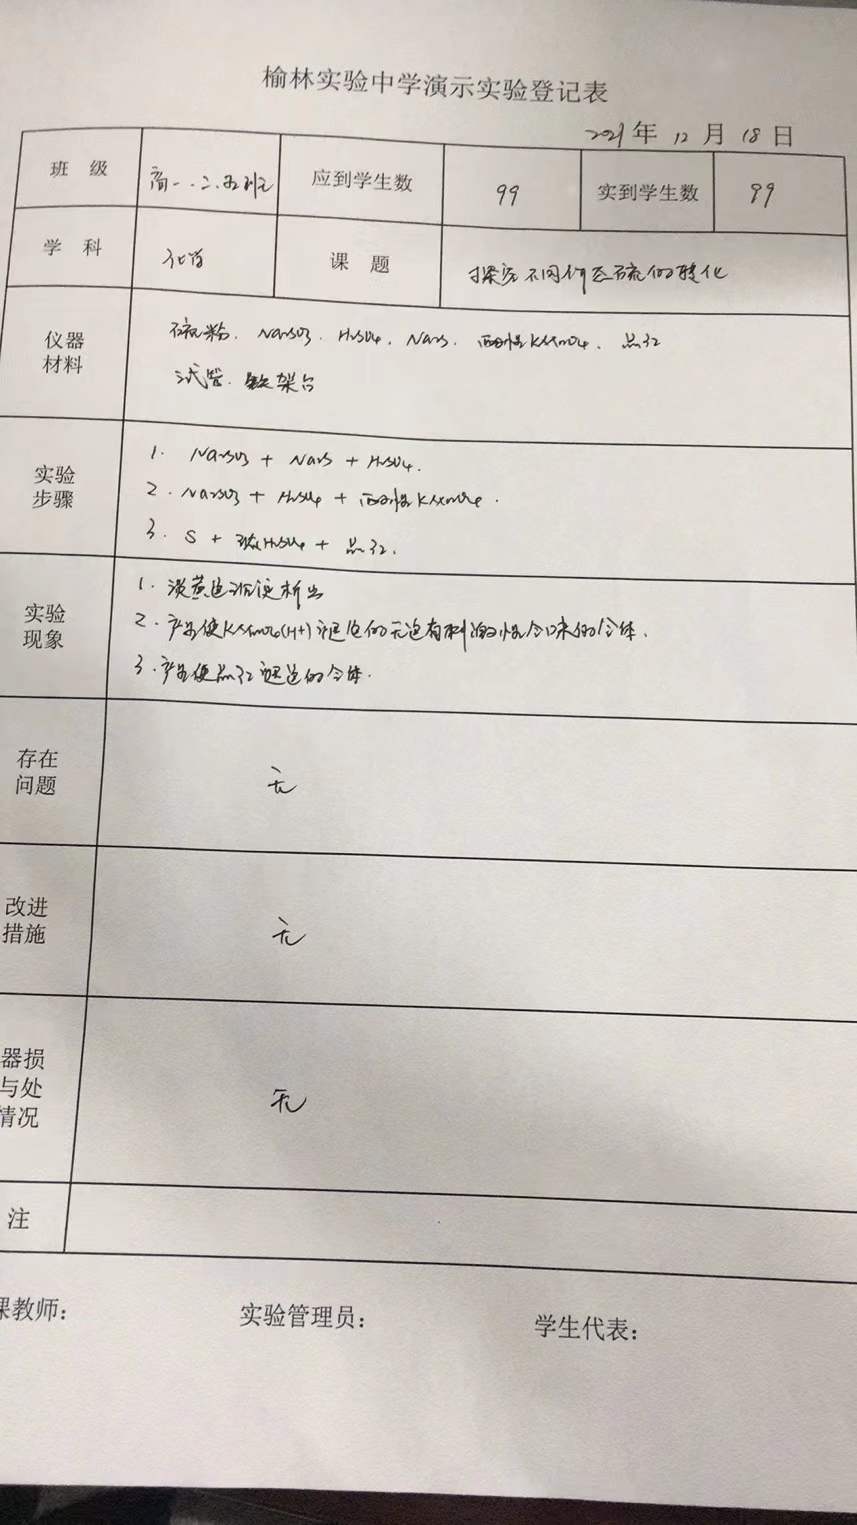 榆林实验中学演示实验登记表
2021年 12 月 18 日
班 级 高一.二.五班 应到学生数 99 实到学生数 99
学 科 化学 课 题 探究不同价态硫的转化
仪器
材料
硫粉. Na2SO3. H2SO4. Na2S. 酸性KMnO4. 品红
试管. 铁架台
实验
步骤
1. Na2SO3 + Na2S + H2SO4.
2. Na2SO3 + H2SO4 + 酸性KMnO4.
3. S + 浓H2SO4 + 品红.
实验
现象
1. 淡黄色沉淀析出
2. 产生使KMnO4(H+)褪色的无色有刺激性气味的气体.
3. 产生使品红褪色的气体.
存在
问题
无
改进
措施
无
器损
与处
情况
无
注
课教师:
实验管理员:
学生代表: